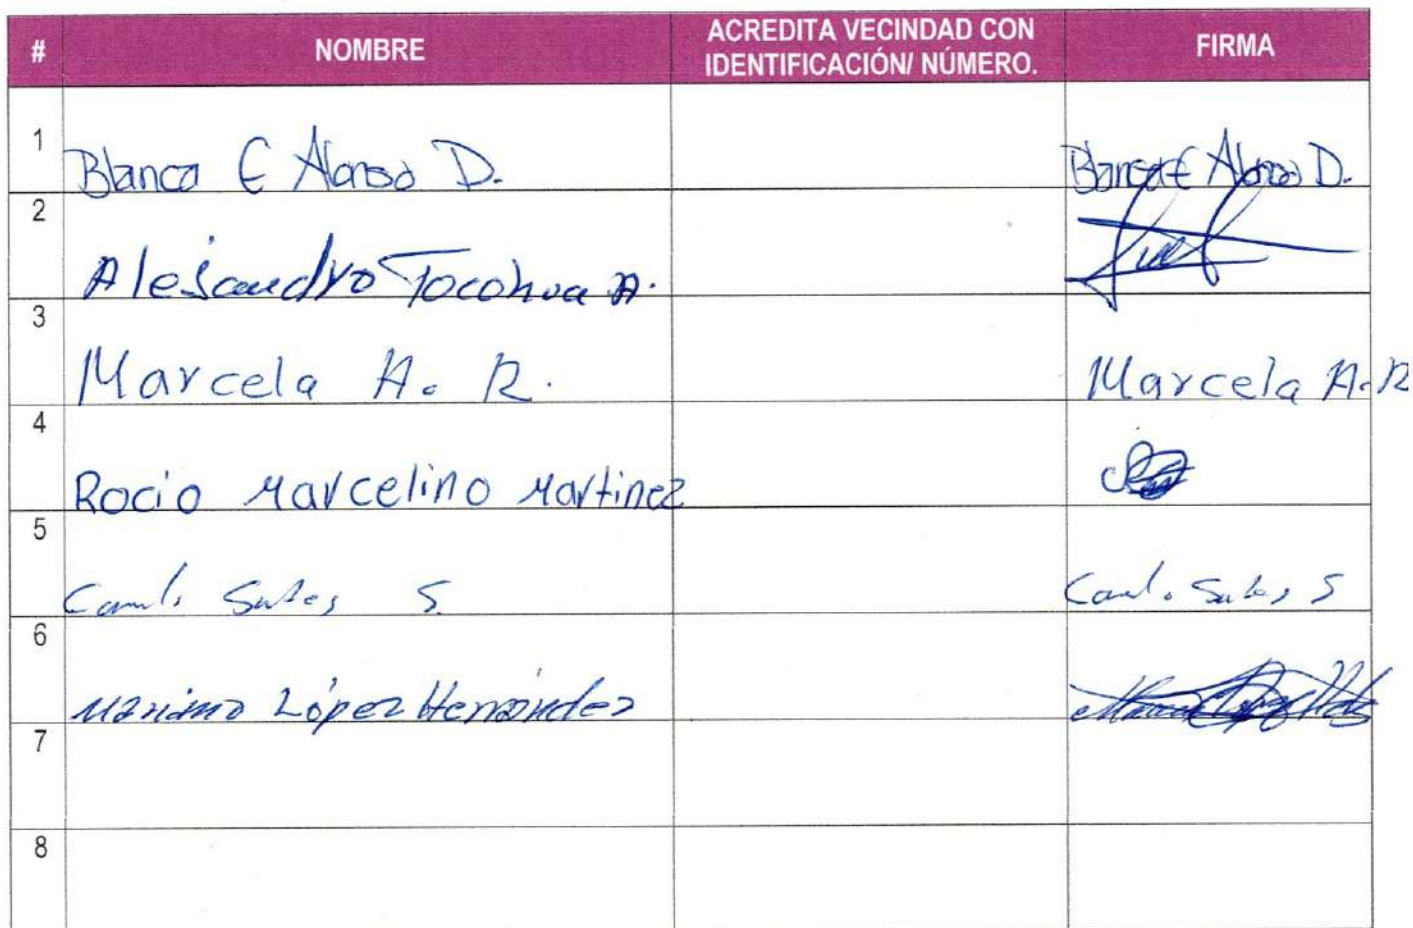 # NOMBRE ACREDITA VECINDAD CON IDENTIFICACIÓN/ NÚMERO. FIRMA
1 Blanca E Alonso D. Blanca E Alonso D.
2 Alejandro Tocohua A.
3 Marcela A. R. Marcela A. R
4 Rocio Marcelino Martinez
5 S. S
6 Maximo López Hernández
7
8